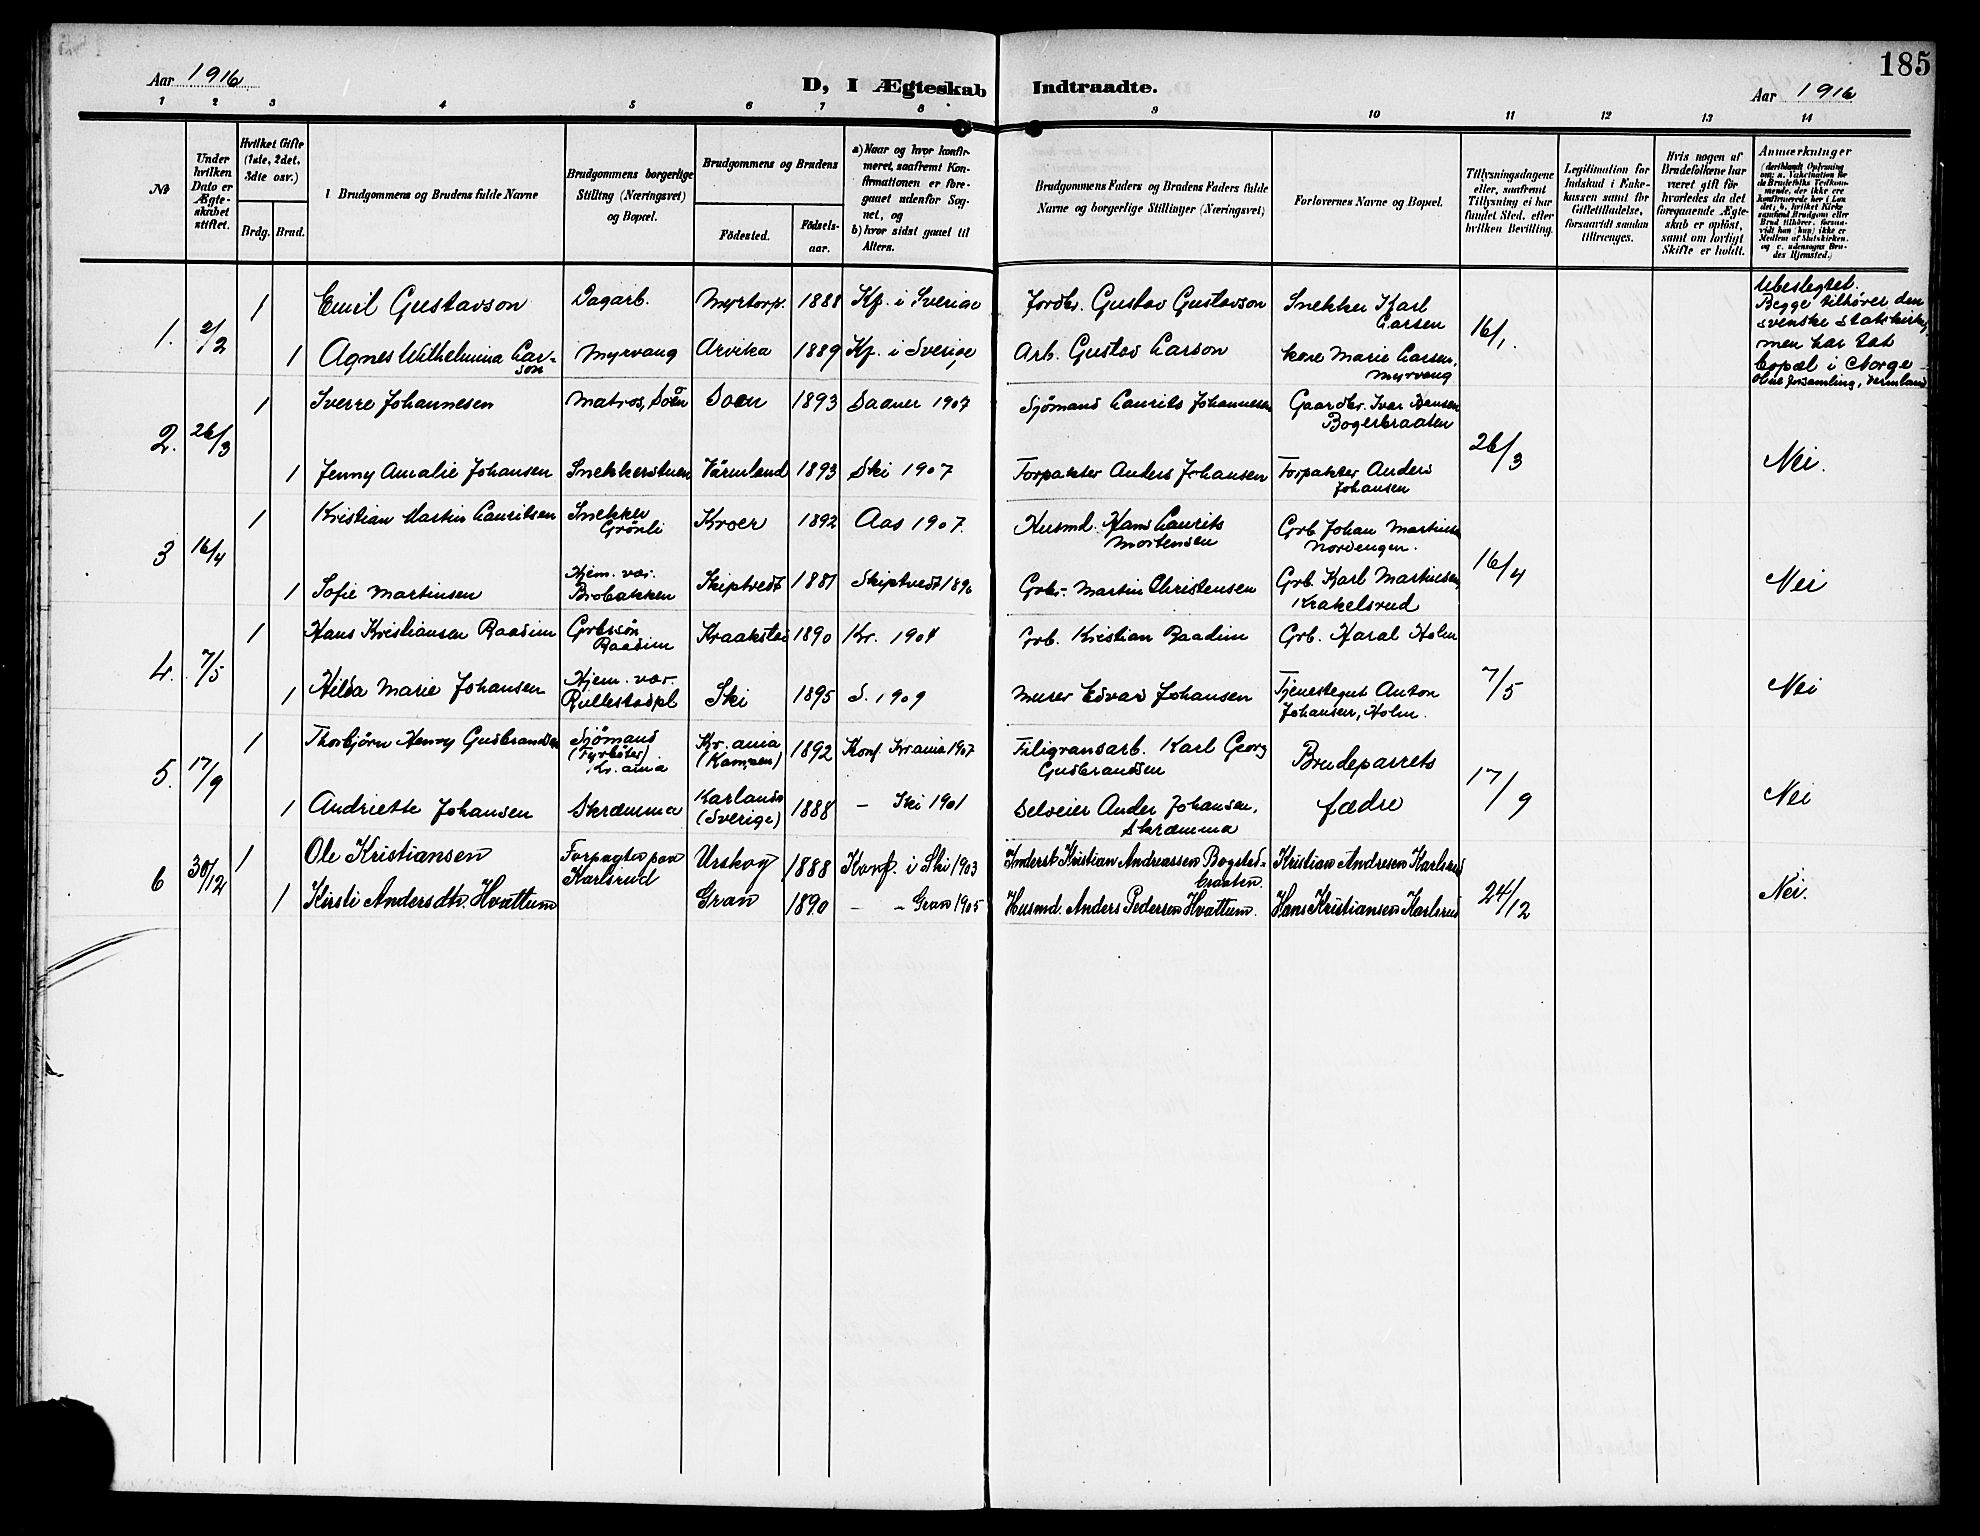 185
Aar 1916
D, I Ægteskab Indtraadte.
Aar 1916
1 2 3 4 5 6 7 8 9 10 11 12 13 14
No
Under hvilken Dato er Ægteskabet stiftet.
Hvilket Gifte (1ste, 2det, 3die osv.)
Brdg. Brud.
Brudgommens og Brudens fulde Navne
Brudgommens borgerlige Stilling (Næringsvei) og Bopæl.
Brudgommens og Brudens
Fødested.
Fødselsaar.
a) Naar og hvor konfirmeret, saafremt Konfirmationen er foregaaet udenfor Sognet, og
b) hvor sidst gaaet til Alters.
Brudgommens Faders og Brudens Faders fulde Navne og borgerlige Stillinger (Næringsvei)
Forlovernes Navne og Bopæl.
Tillysningsdagene eller, saafremt Tillysning ei har fundet Sted, efter hvilken Bevilling.
Legitimation for Indskud i Enkekassen samt for Giftetilladelse, forsaavidt saadan tiltrænges.
Hvis nogen af Brudefolkene har været gift før hvorledes da det foregaaende Ægteskab er opløst, samt om lovligt Skifte er holdt.
Anmærkninger
1. 2/2
1 Emil Gustavson Dagarb. Myrtorp. 1888 Kf. i Sverige Jordbr. Gustav Gustavson Snekker Karl Larsen 16/1.
1 Agnes Wilhelmina Larson Myrvang Arvika 1889 Kf. i Sverige Arb. Gustav Larson kone Marie Larsen, Myrvang
Ubeslegtet.
Begge tilhører den
svenske statskirke,
men har tat
bopæl i Norge -
2. 26/3
1 Sverre Johannesen Matros, Soon Soon 1893 Saaner 1907 Sjømand Laurits Johannesen Gaardbr. Ivar Hansen Bogerbraaten 26/3
1 Jenny Amalie Johansen Snekkerstuen Värmland 1893 Ski 1907 Forpakter Anders Johansen Forpakter Anders Johansen Nei.
3 16/4
1 Kristian Martin Lauritsen Snekker Grönli Kroer 1892 Aas 1907. Husmd. Hans Laurits Mortensen Grb. Johan Martinsen Nordengen. 16/4
1 Sofie Martinsen Hjem. vær. Brobakken Skiptvedt 1881 Skiptvedt 1896 Grbr. Martin Christensen Grb. Karl Martinsen, Krakelsrud Nei
4. 7/5
1 Hans Kristiansen Raadim Grbssøn Raadim Kraakstad 1890 Kr. 1904 Grb. Kristian Raadim Grb. Haral Holm 7/5
1 Hilda Marie Johansen Hjem. vær. Rullestadpl Ski 1895 S. 1909 Murer Edvard Johansen Tjenestegut Anton Johansen, Holm. Nei
5. 17/9
1 Thorbjörn Henry Gudbrandsen Sjömand (Fyrböter) Kr.ania Kr.ania (Kampen) 1892 Konf. Kr.ania 1907 Filigransarb. Karl Georg Gudbrandsen Brudeparrets 17/9
1 Andriette Johansen Skræmma Karlanda (Sverige) 1888 - Ski 1901 Selveier Ander Johansen, Skræmma fædre Nei
6 30/12
1 Ole Kristiansen Forpagter paa Karlsrud Urskog 1888 Konf. i Ski 1903 Inderst Kristian Andreassen Bogstadbraaten. Kristian Andresen Karlsrud 24/12
1 Kirsti Andersdtr. Hvattum Gran 1890 - - Gran 1905 Husmd. Anders Pedersen Hvattum. Hans Kristiansen Karlsrud Nei.